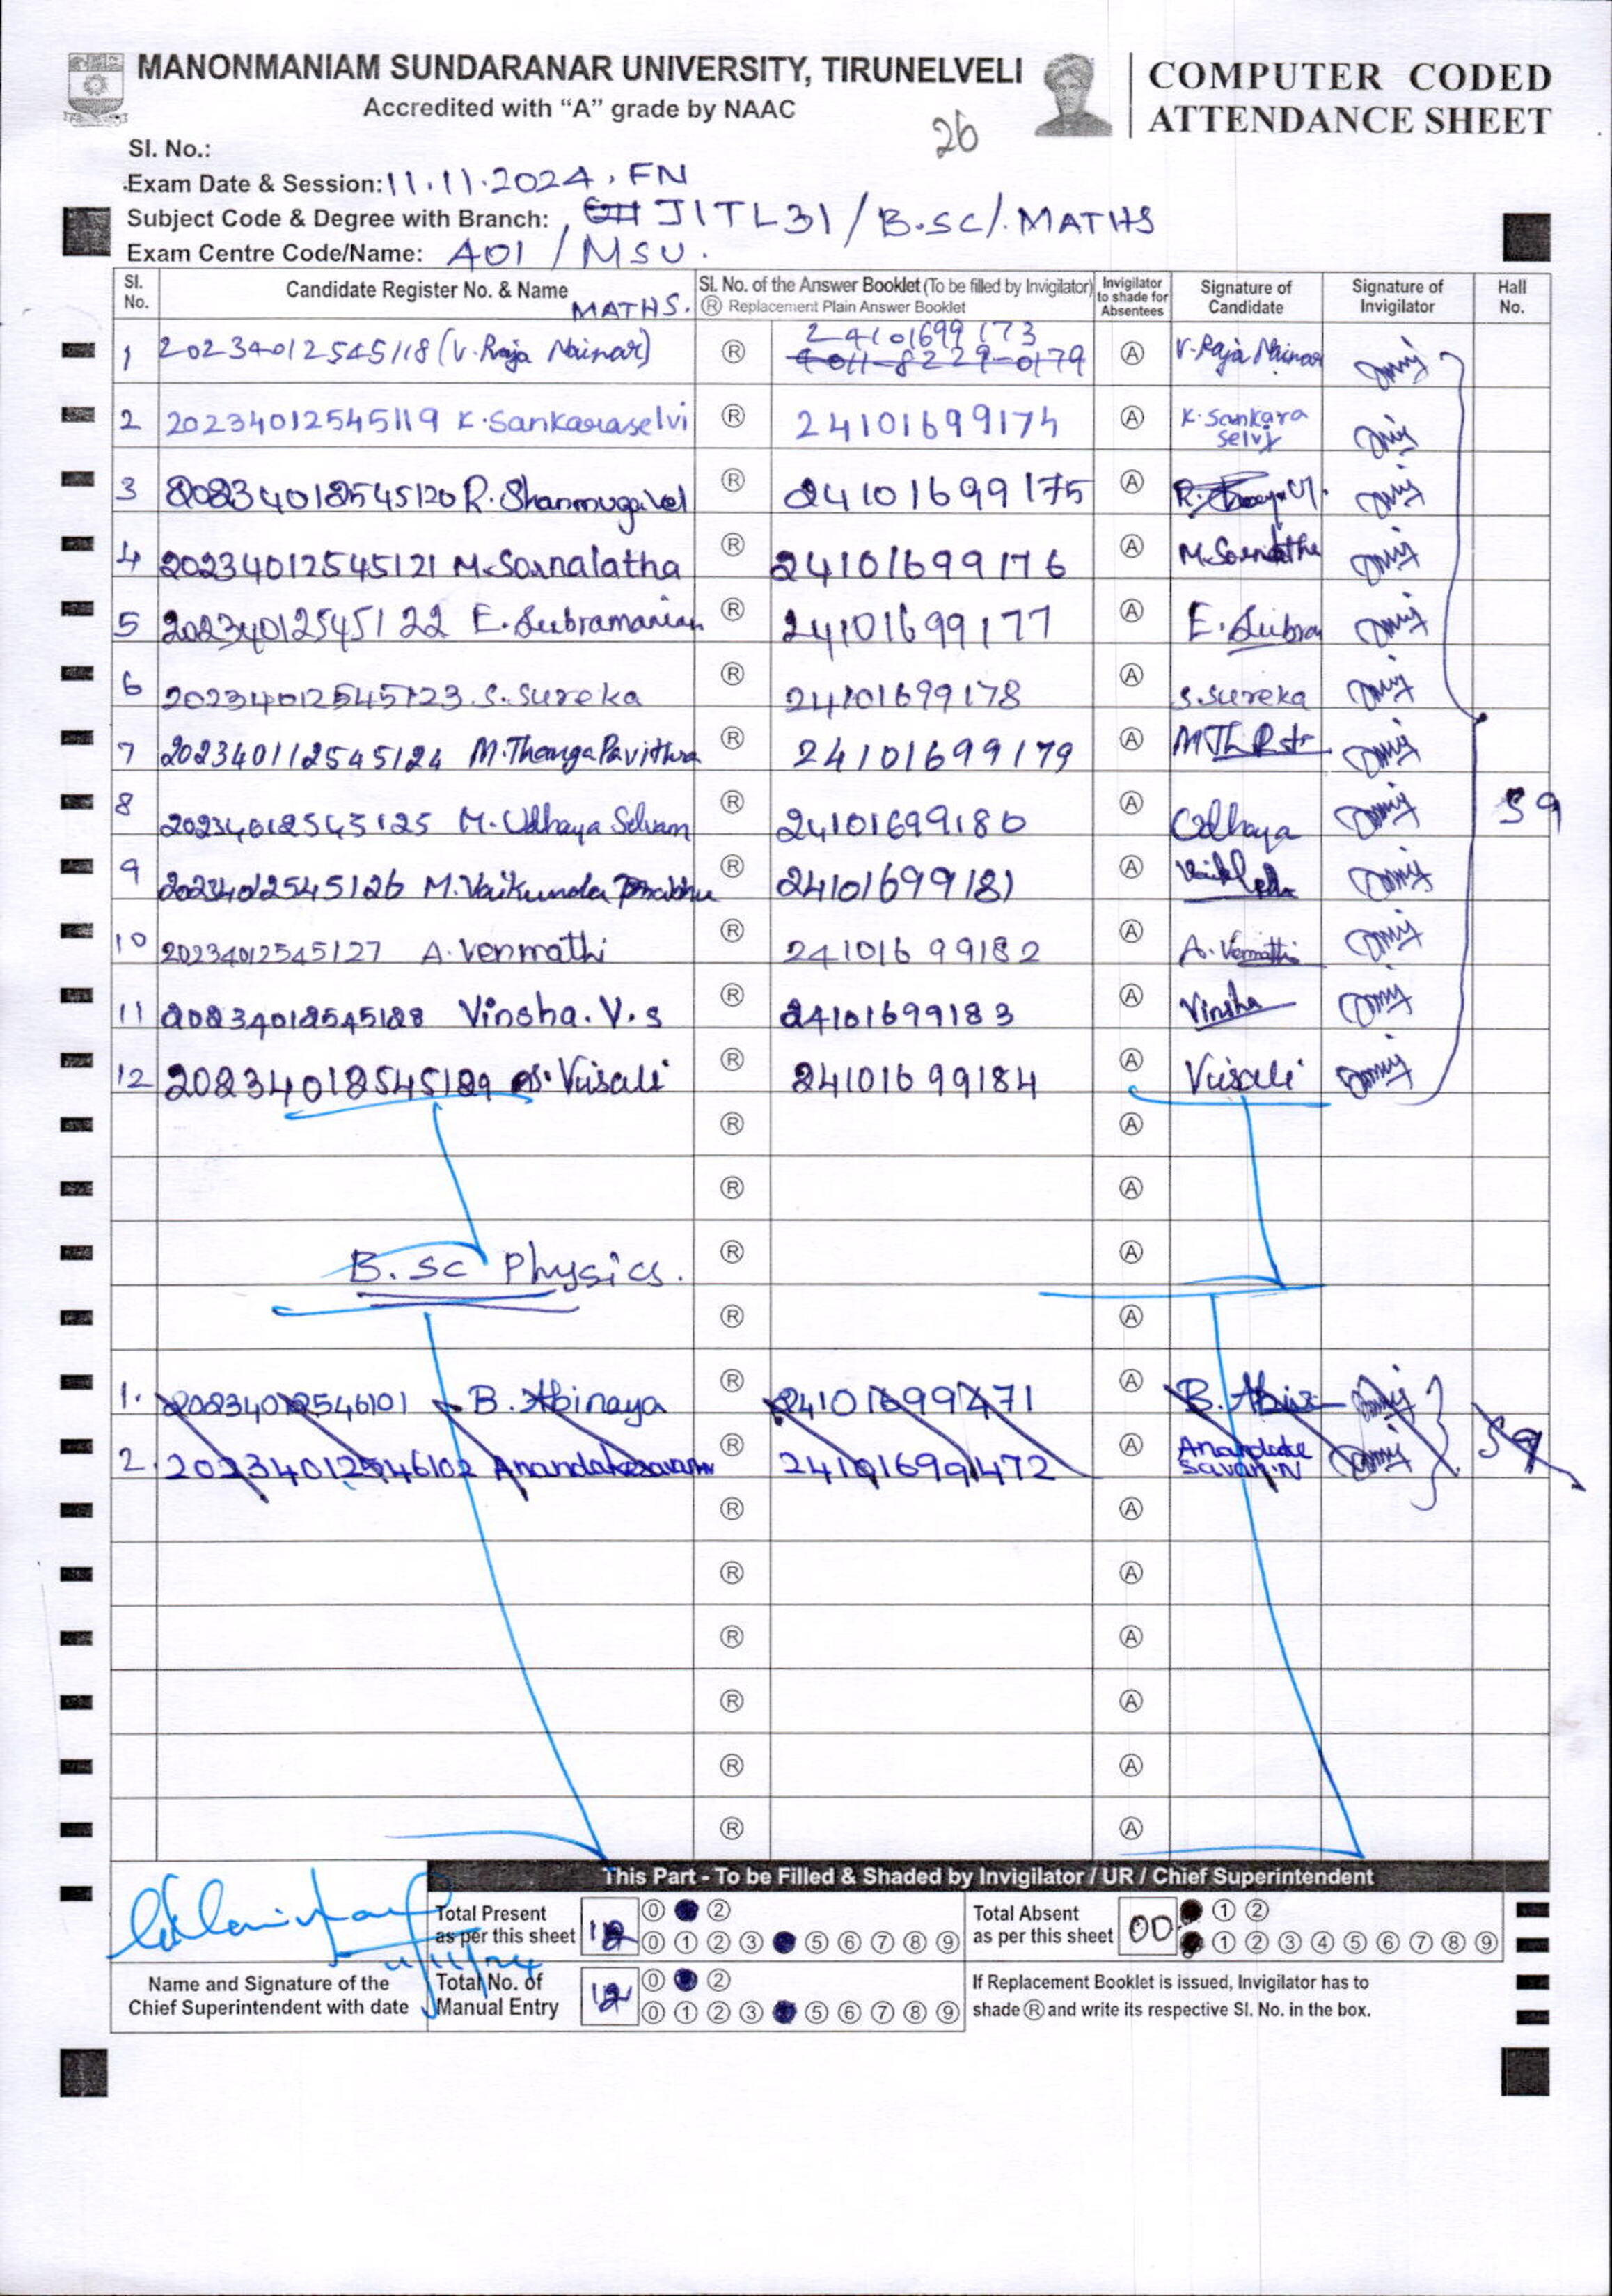 MANONMANIAM SUNDARANAR UNIVERSITY, TIRUNELVELI
Accredited with “A” grade by NAAC
COMPUTER CODED
ATTENDANCE SHEET
26
Sl. No.:
Exam Date & Session: 11.11.2024, FN
Subject Code & Degree with Branch: JITL31/B.SC/.MATHS
Exam Centre Code/Name: A01 / MSU.
Sl. No. Candidate Register No. & Name MATHS. Sl. No. of the Answer Booklet (To be filled by Invigilator) Ⓡ Replacement Plain Answer Booklet Invigilator to shade for Absentees Signature of Candidate Signature of Invigilator Hall No.
24101699173
1 20234012545118 (V. Raja Nainar) Ⓡ 4011-8229-0179 Ⓐ V. Raja Nainar
2 20234012545119 K. Sankaraselvi Ⓡ 24101699174 Ⓐ K. Sankara Selvi
3 20234012545120 R. Shanmugavel Ⓡ 24101699175 Ⓐ
4 20234012545121 M. Sornalatha Ⓡ 24101699176 Ⓐ M. Sornalatha
5 20234012545122 E. Subramanian Ⓡ 24101699177 Ⓐ E. Subra
6 20234012545123 S. Sureka Ⓡ 24101699178 Ⓐ S. Sureka
7 202340112545124 M. Thanga Pavithra Ⓡ 24101699179 Ⓐ
8 20234012545125 M. Udhaya Selvam Ⓡ 24101699180 Ⓐ Udhaya 59
9 20234012545126 M. Vaikunda Prabhu Ⓡ 24101699181 Ⓐ
10 20234012545127 A. Venmathi Ⓡ 24101699182 Ⓐ A. Venmathi
11 20234012545128 Vinsha. V. S Ⓡ 24101699183 Ⓐ Vinsha
12 20234012545129 Visali Ⓡ 24101699184 Ⓐ Visali
Ⓡ Ⓐ
Ⓡ Ⓐ
B.SC Physics. Ⓡ Ⓐ
Ⓡ Ⓐ
1. 20234012546101 B. Abinaya Ⓡ 24101699471 Ⓐ B. Abi
2. 20234012546102 Anandakesavan Ⓡ 24101699472 Ⓐ Anandake savan.N 59
Ⓡ Ⓐ
Ⓡ Ⓐ
Ⓡ Ⓐ
Ⓡ Ⓐ
Ⓡ Ⓐ
Ⓡ Ⓐ
This Part - To be Filled & Shaded by Invigilator / UR / Chief Superintendent
Total Present as per this sheet 12 0 2
0 1 2 3 5 6 7 8 9
Total Absent as per this sheet 00 1 2
1 2 3 4 5 6 7 8 9
11/11/24
Name and Signature of the
Chief Superintendent with date
Total No. of Manual Entry 12 0 2
0 1 2 3 5 6 7 8 9
If Replacement Booklet is issued, Invigilator has to
shade Ⓡ and write its respective Sl. No. in the box.